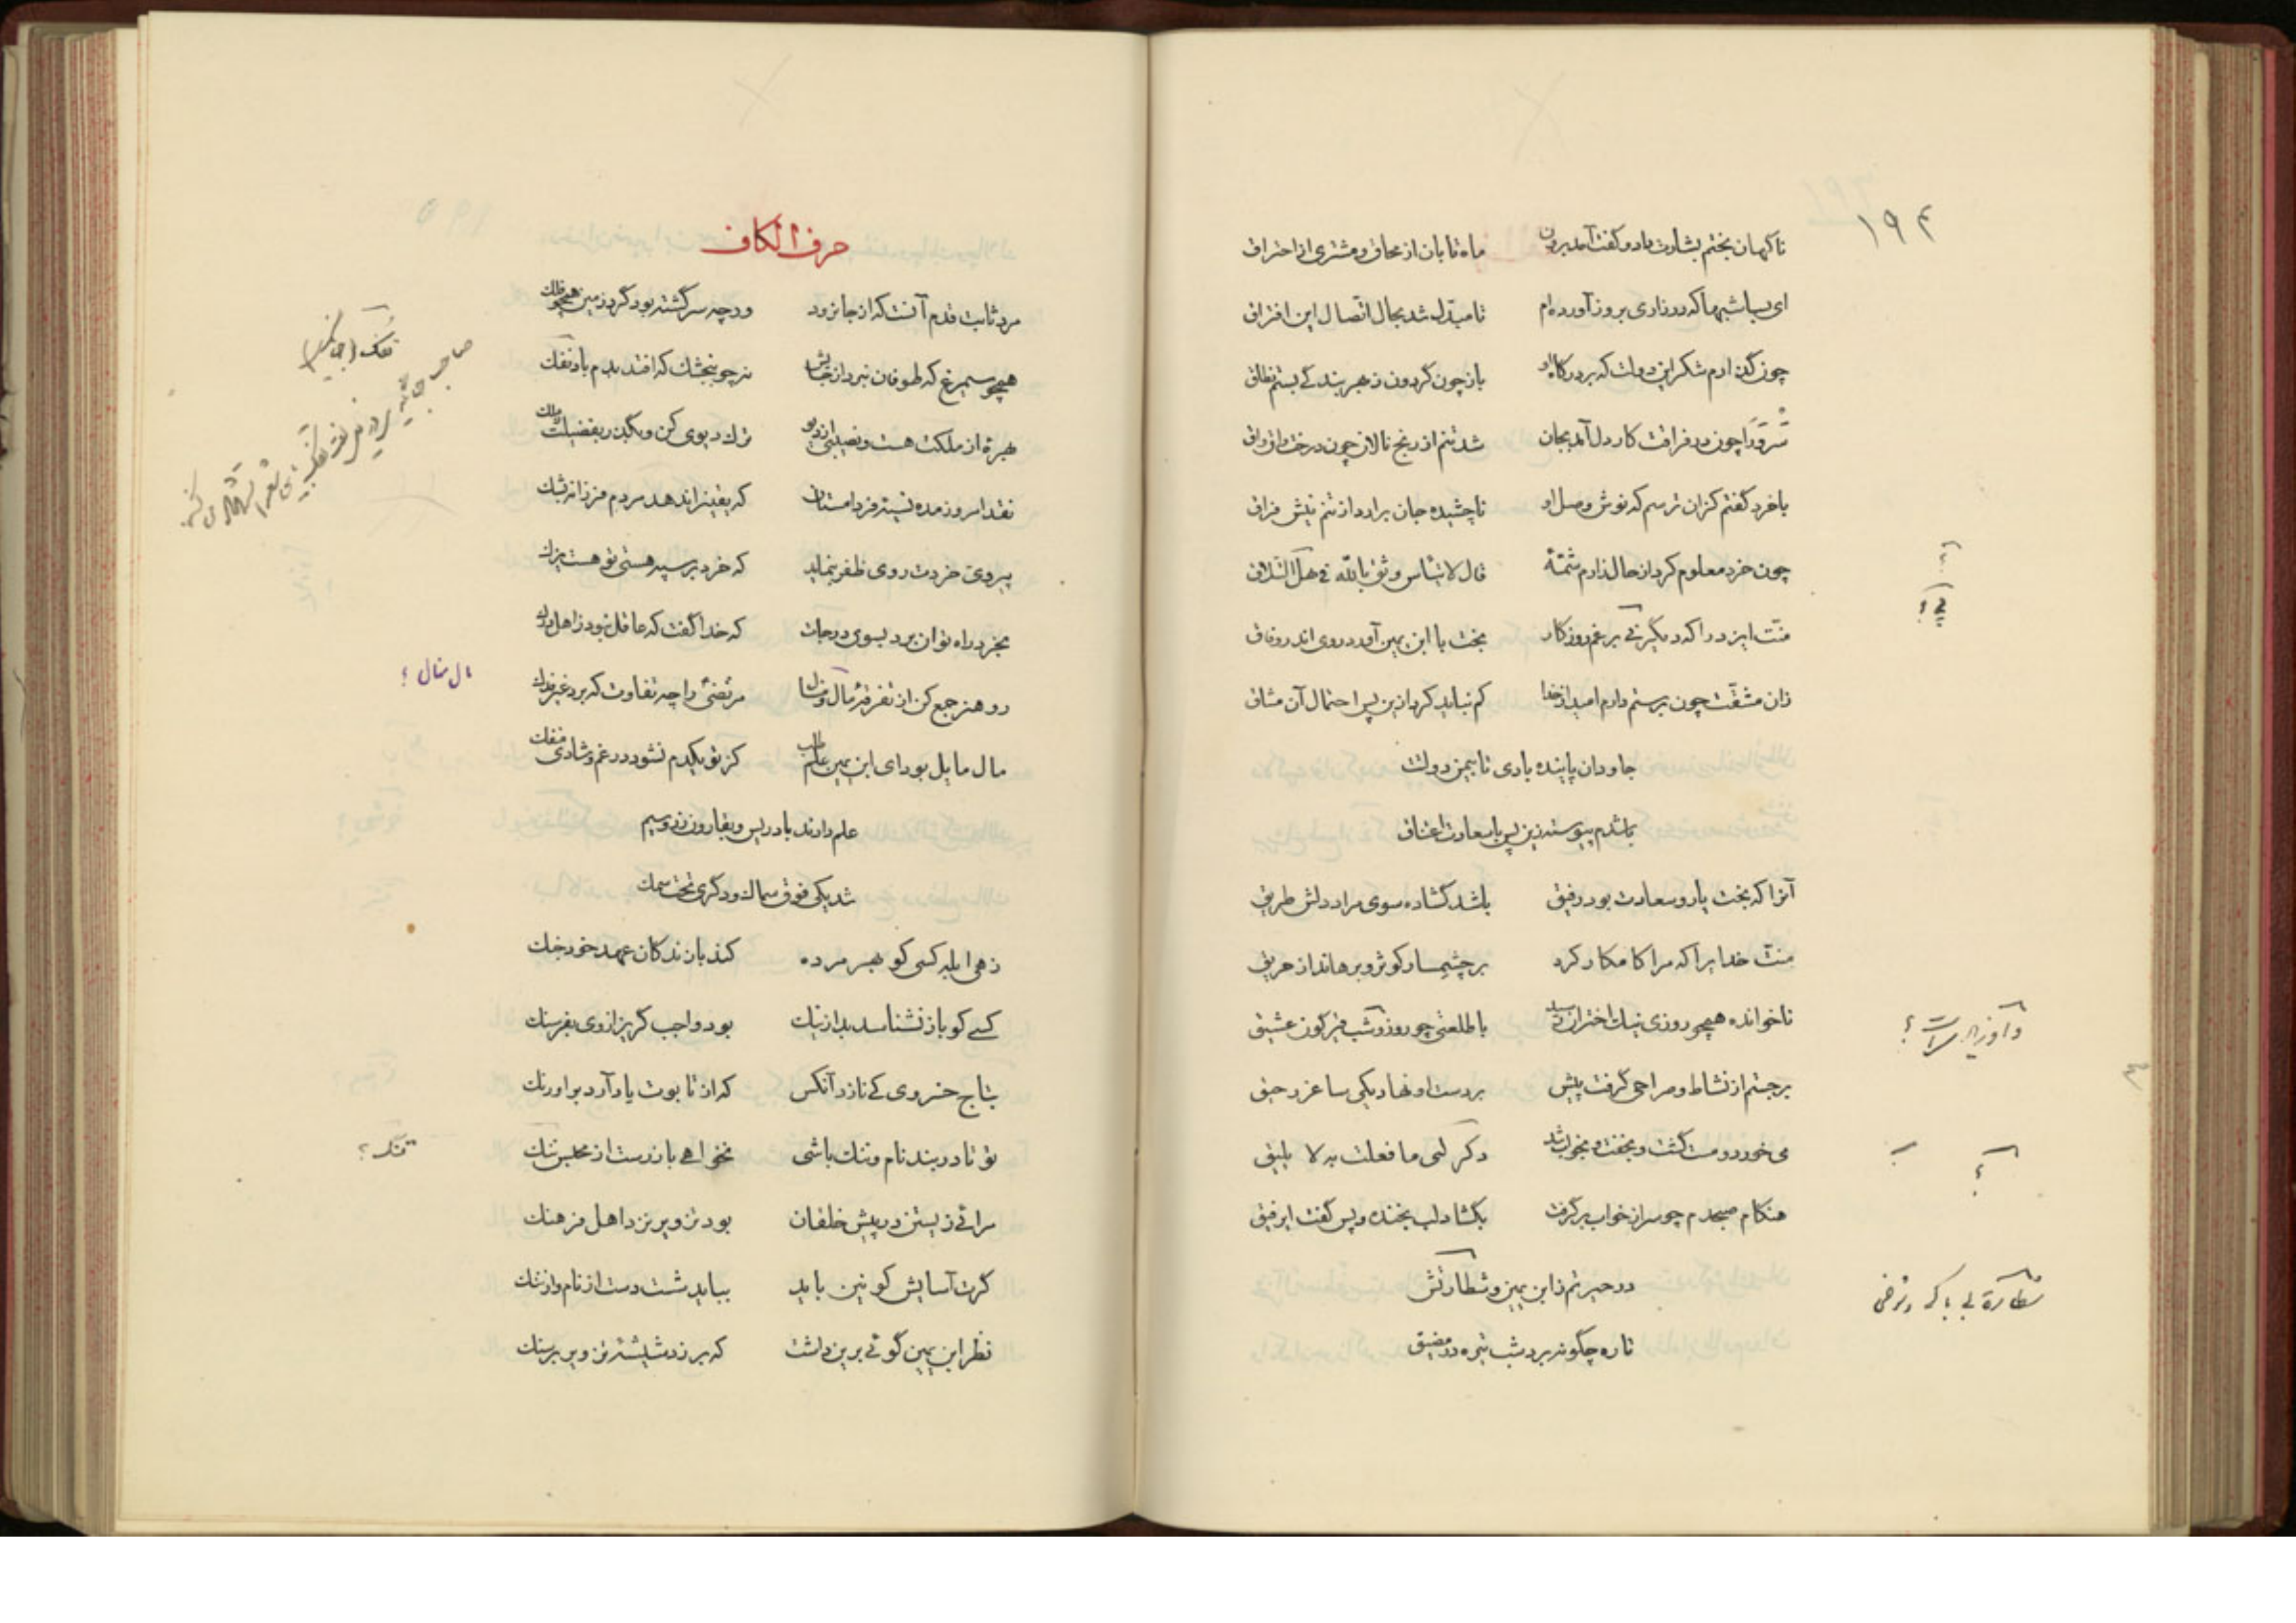 ۱۹۴
ناکهان بختم بشارت داد و کفت آمد برون ماه تابان از محاق و مشتری از احتراق
ای بسا شبها که در زاری بروز آورده‌ام تا مبدّل شد بحال اتّصال این افتراق
چون کذارم شکر این دولت که بر درکاه او باز چون کردون ز هر بندکی بستم نطاق
سرورا چون در فراقت کار دل آمد بجان شد تنم از رنج نالان چون درخت واق واق
با خرد کفتم کزان ترسم که نوش وصل او ناچشیده جان برآرد از تنم نیش فراق
چون خرد معلوم کرد از حال زارم شمّهٔ قال لا تیأس وثق بالله فی هذا التلاق
منّت ایزد را که دیگر بر غم روزکار بخت با ابن یمین آورد روی اندر وفاق
زان مشقّت چون برستم دارم امید از خدا کم نباید کرد ازین پس احتمال آن مشاق
جاودان پاینده بادی تا بیمن دولتت
باشدم پیوسته زین پس با سعادت اعتناق
آنرا که بخت یار و سعادت بود رفیق باشد کشاده سوی مراد دلش طریق
منّت خدایرا که مرا کامکار کرد بر چشمسار کوثر و برهاند از حریق
ناخوانده همچو روزی نیک اختران رسید با طلعتی چو روز و شب قیرکون عشیق
برجستم از نشاط و صراحی کرفت پیش بر دست او نهاد یکی ساغر رحیق
می خورد و مست کشت و بخفت و بخواب شد دکر لی ما فعلت به لا یلیق
هنکام صبحدم چو سر از خواب برکرفت بکشاد لب بخنده و پس کفت ای رفیق
در حیرتم ز ابن یمین و شطارتش
تا ره چگونه برد شب تیره در مضیق
وآور
شطارة بی باکی و شوخی
حرف الکاف
مرد ثابت قدم آنست که از جا نرود ورچه سرگشته بود گرد زمین همچو فلک
همچو سیمرغ که طوفان نبرد از جایش نه چو بنجشک که افتد بدم باد تفک
بهرهٔ از ملکت هست و نصیبی از دیو ترک دیوی کن و بگذر بفضیلت ز ملک
نقد امروز مده نسیه فردا مستان که یقین را ندهد مردم فرزانه بشک
پیروی خردت روی ظفر بنماید که خرد بر سپه هستی تو هست یزک
بخرد راه توان برد بسوی درجات که خدا گفت که عاقل نبود ز اهل درک
رو هنر جمع کن از تفرقهٔ مال و منال مرتضی را چه تفاوت که برد غیر فدک
مال مایل بود ای ابن یمین علم طلب کز تو یکدم نشود در غم و شادی منفک
علم دادند بادریس و بقارون زر و سیم
شد یکی فوق سماک و دگری تحت سمک
زهی ابله کسی کو بهر مرده کند با زندکان عهد خود جنک
کسی کو باز نشناسد بد از نیک بود واجب گریز از وی بفرسنک
بتاج خسروی کی نازد آنکس که از تابوت یاد آرد بر اورنک
تو تا در بند نام و ننک باشی نخواهی باز رست از محبس تنک
مرائی زیستن در پیش خلقان بود تزویر نزد اهل فرهنک
گرت آسایش کونین باید بباید شست دست از نام و از ننک
نظر ابن یمین گوئی برین داشت که بر زد شیشهٔ تزویر بر سنک
تفک
مال منال ؟
تنک ؟